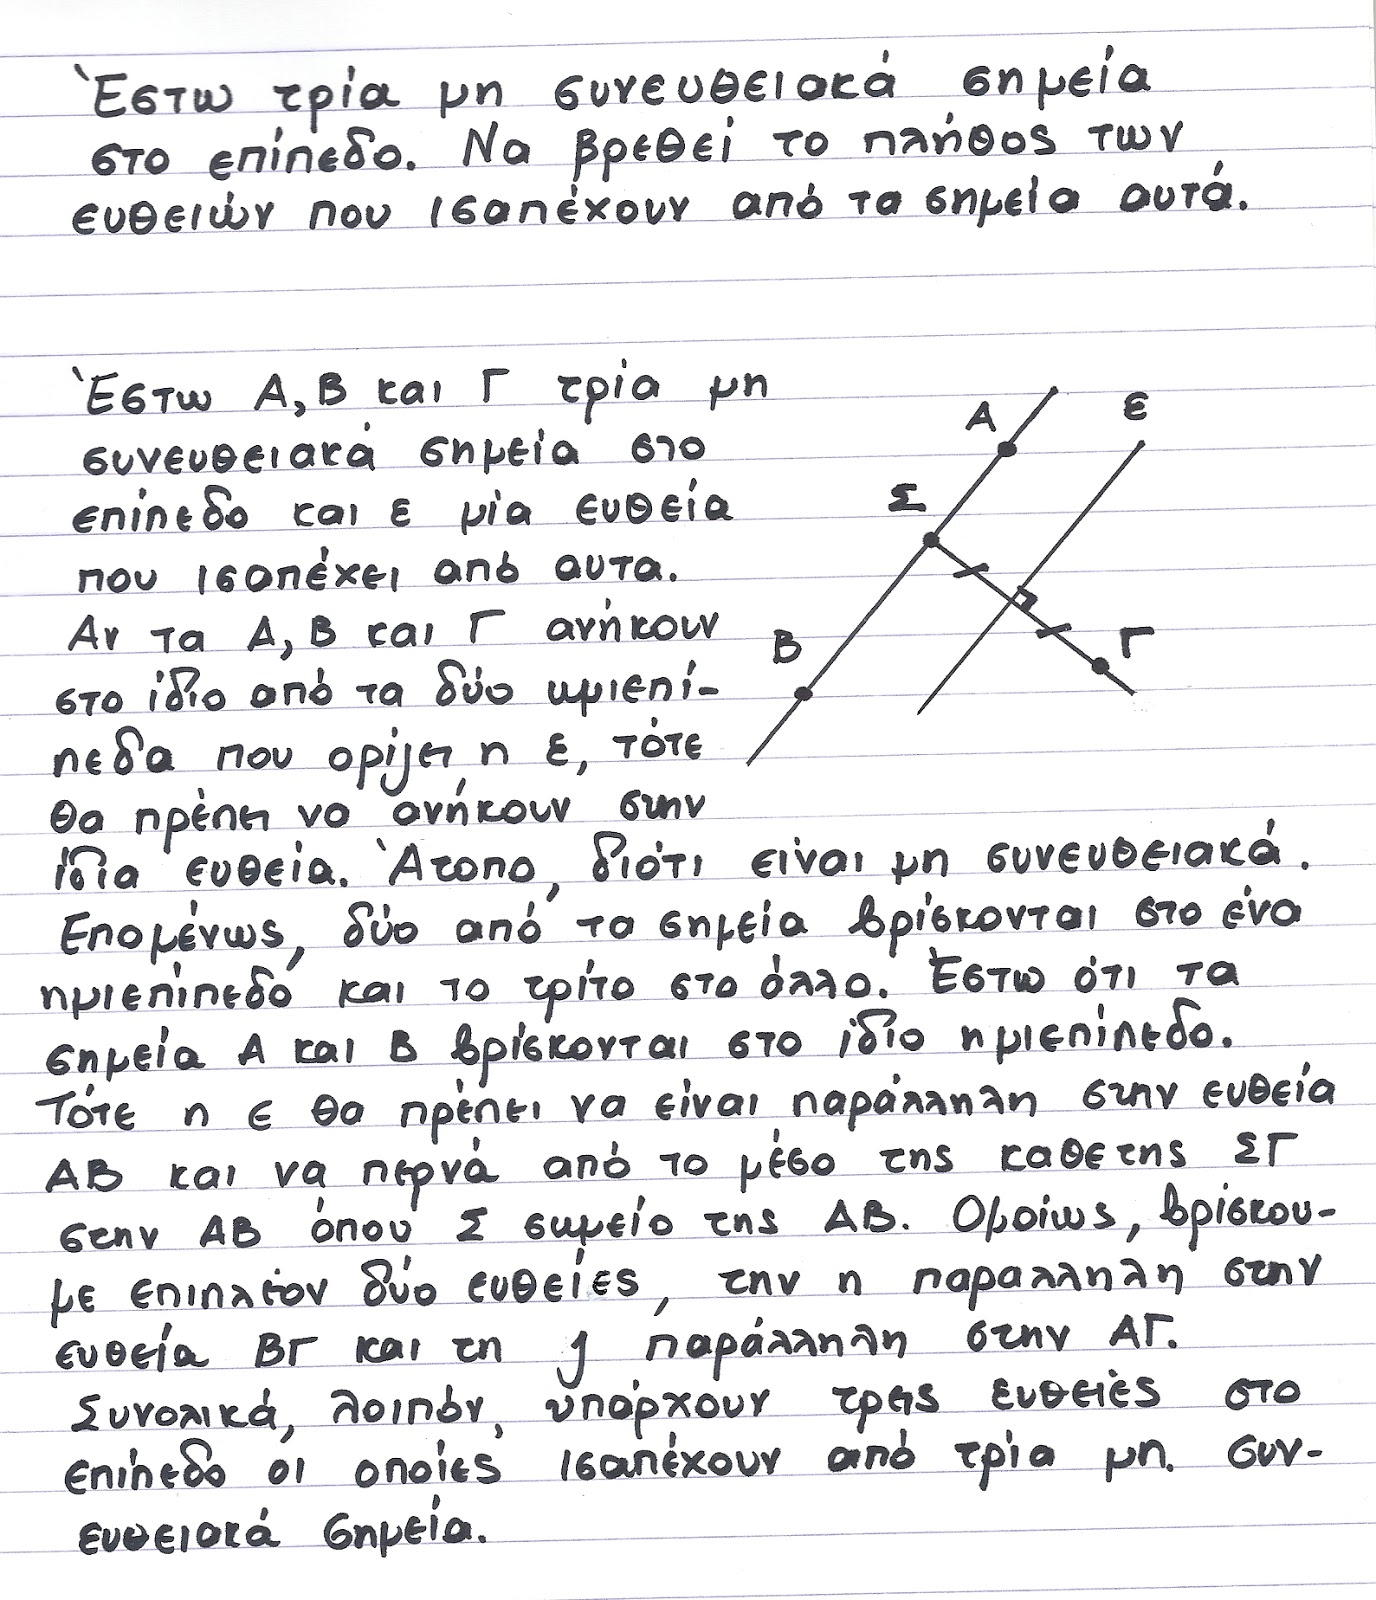 Έστω τρία μη συνευθειακά σημεία
στο επίπεδο. Να βρεθεί το πλήθος των
ευθειών που ισαπέχουν από τα σημεία αυτά.
Έστω Α, Β και Γ τρία μη
συνευθειακά σημεία στο
επίπεδο και ε μία ευθεία
που ισαπέχει από αυτα.
Αν τα Α, Β και Γ ανήκουν
στο ίδιο από τα δύο ημιεπί-
πεδα που ορίζει η ε, τότε
θα πρέπει να ανήκουν στην
ίδια ευθεία. Άτοπο, διότι είναι μη συνευθειακά.
Επομένως, δύο από τα σημεία βρίσκονται στο ένα
ημιεπίπεδο και το τρίτο στο άλλο. Έστω ότι τα
σημεία Α και Β βρίσκονται στο ίδιο ημιεπίπεδο.
Τότε η ε θα πρέπει να είναι παράλληλη στην ευθεία
ΑΒ και να περνά από το μέσο της καθετης ΣΓ
στην ΑΒ όπου Σ σημείο της ΑΒ. Ομοίως, βρίσκου-
με επιπλέον δύο ευθείες, την η παραλληλη στην
ευθεία ΒΓ και τη ζ παράλληλη στην ΑΓ.
Συνολικά, λοιπόν, υπάρχουν τρεις ευθειές στο
επίπεδο οι οποίες ισαπέχουν από τρία μη. συν-
ευθειακά σημεία.
Α
ε
Σ
Β
Γ